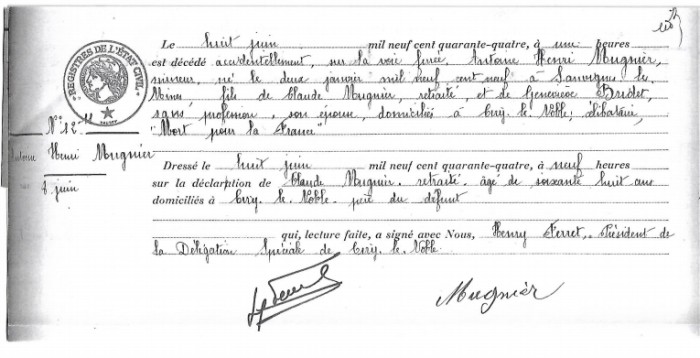 REGISTRES DE L'ÉTAT CIVIL
Le huit juin mil neuf cent quarante-quatre, à une heures
est décédé accidentellement, sur la voie ferrée, Antoine Henri Mugnier,
mineur, né le deux janvier mil neuf cent neuf à Sanvignes les
Mines fils de Claude Mugnier, retraité, et de Geneviève Bridet,
sans profession, son épouse, domiciliés à Ciry-le-Noble, célibataire,
"Mort pour la France"
N° 12
Antoine Henri Mugnier
8 juin
Dressé le huit juin mil neuf cent quarante-quatre, à neuf heures
sur la déclarption de Claude Mugnier, retraité, âgé de soixante huit ans
domiciliés à Ciry-le-Noble, père du défunt
qui, lecture faite, a signé avec Nous, Henry Ferret, Président de
la Délégation Spéciale de Ciry-le-Noble.
Mugnier